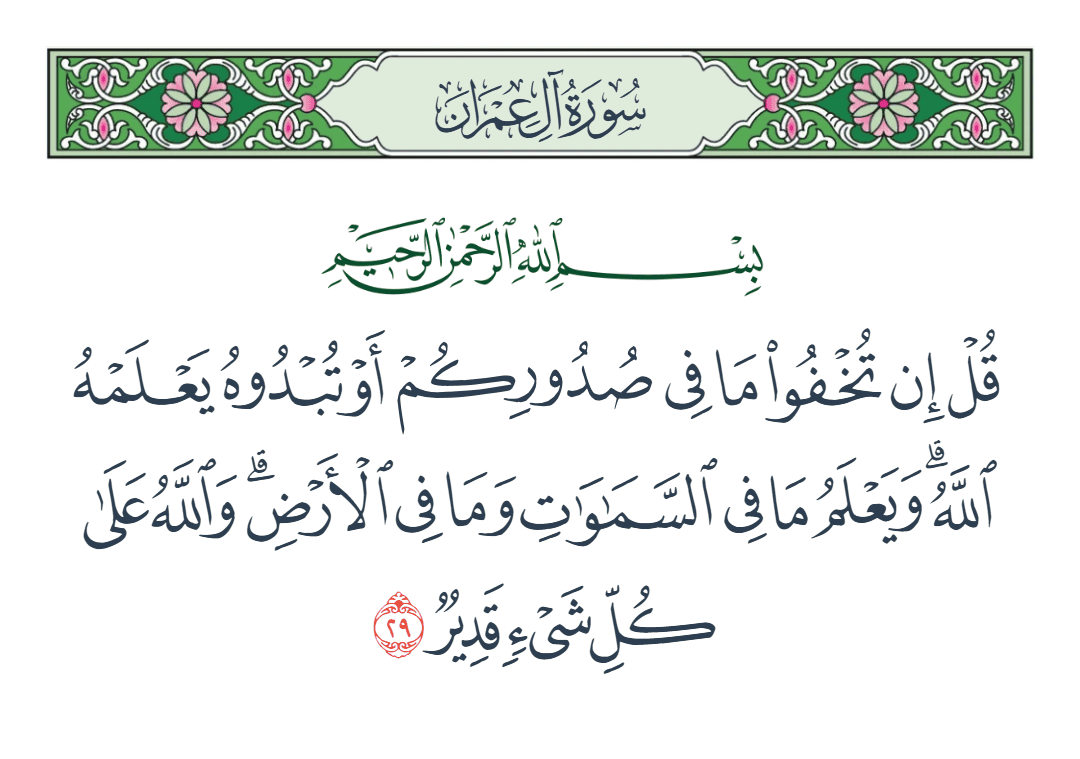 سُورَةُ آلِ عِمْرَانَ
بِسْمِ ٱللَّهِ ٱلرَّحْمَٰنِ ٱلرَّحِيمِ
قُلْ إِن تُخْفُوا۟ مَا فِى صُدُورِكُمْ أَوْ تُبْدُوهُ يَعْلَمْهُ
ٱللَّهُ ۗ وَيَعْلَمُ مَا فِى ٱلسَّمَٰوَٰتِ وَمَا فِى ٱلْأَرْضِ ۗ وَٱللَّهُ عَلَىٰ
كُلِّ شَىْءٍ قَدِيرٌ ٢٩